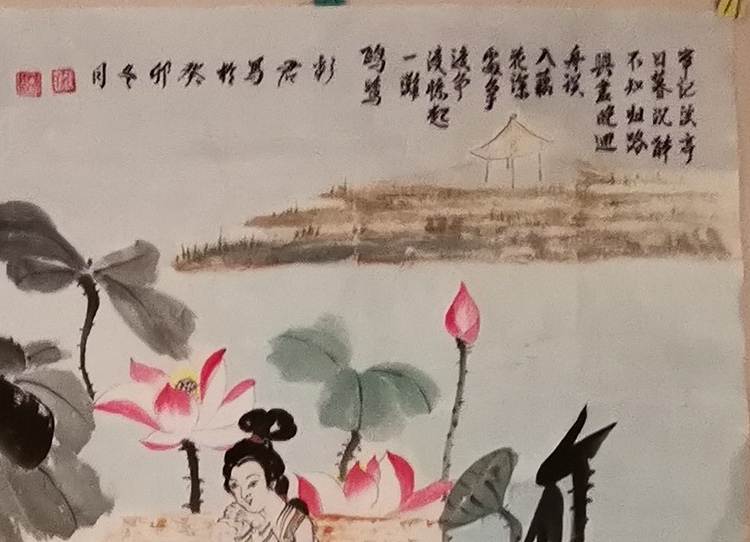 常记溪亭
日暮沉醉
不知归路
興盡晚迴
舟误
入藕
花深
處争
渡争
渡惊起
一滩
鸥鹭
彭君写於癸卯冬月